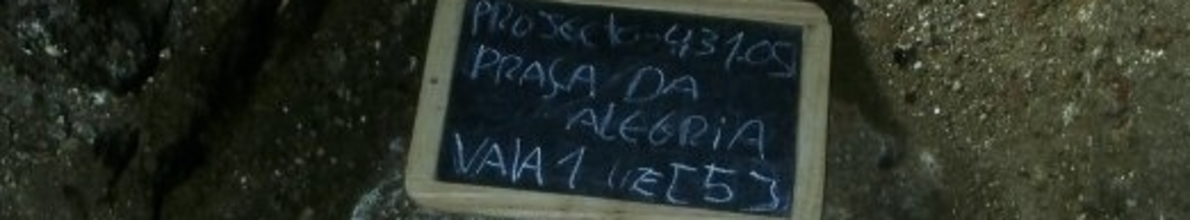 PROJECTO-431.05
PRAÇA DA
ALEGRIA
VALA 1 UE[5]